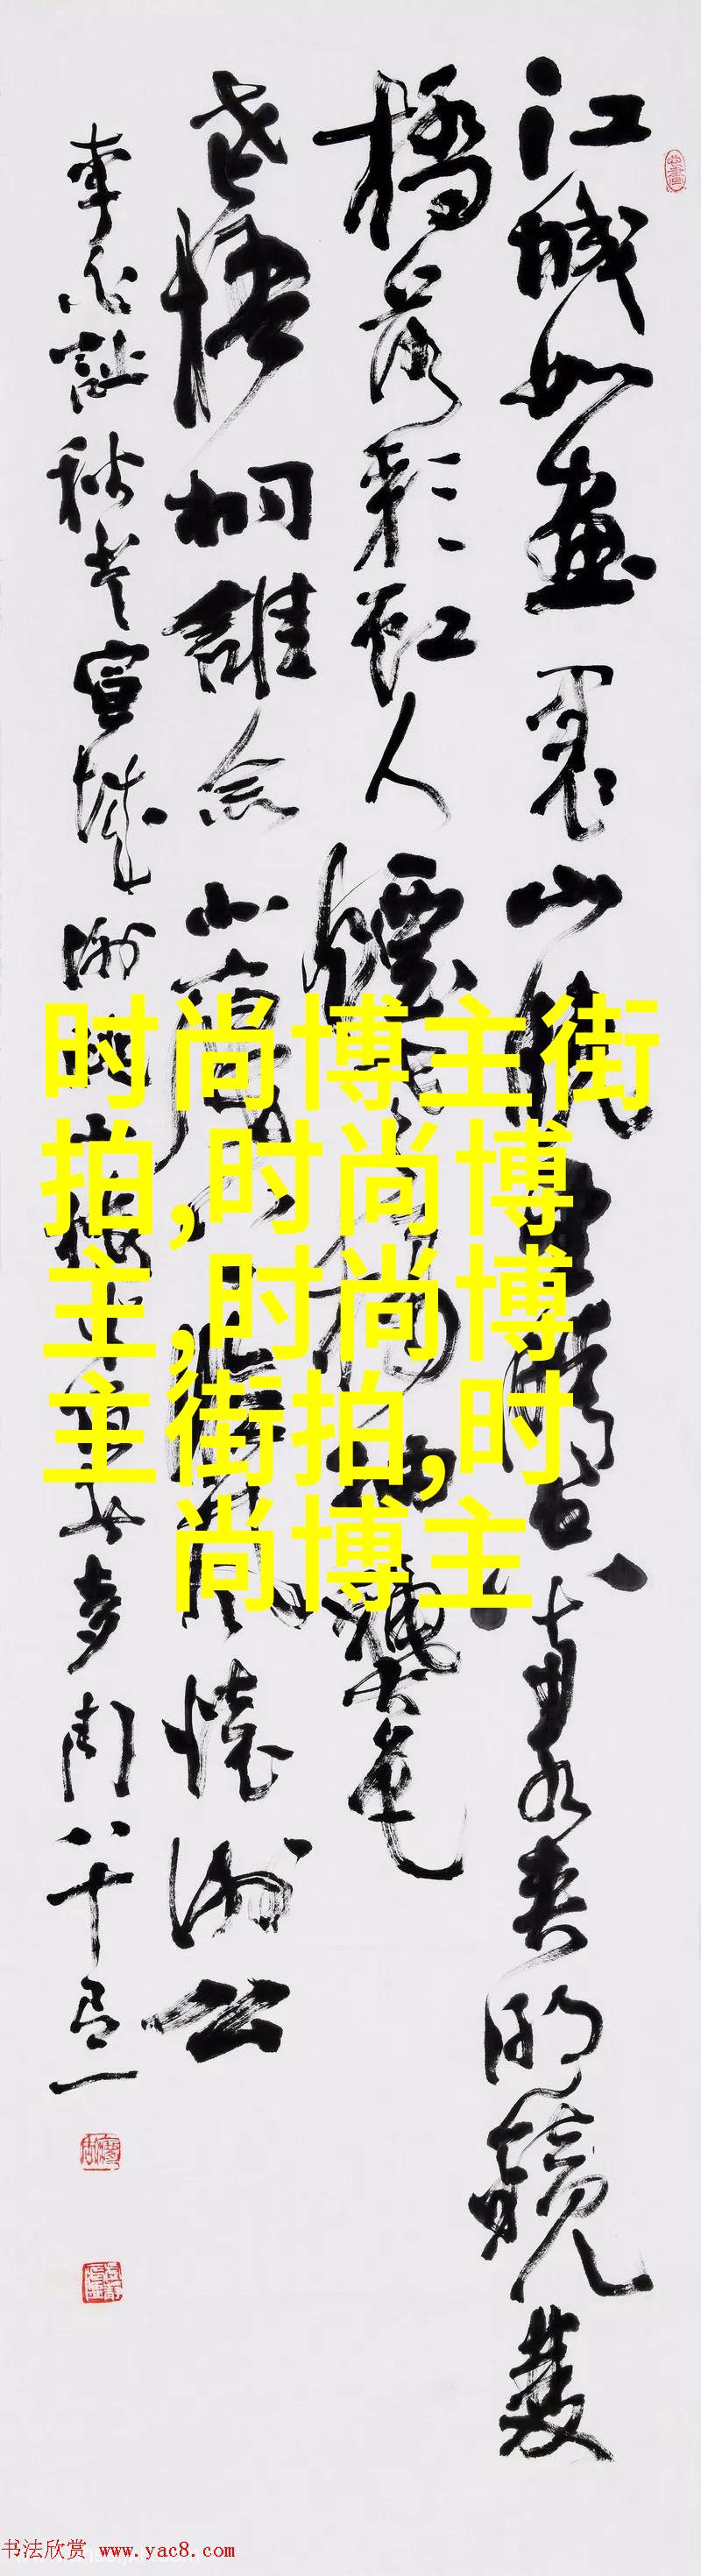 江城如畫裏山晚望晴空兩水夾明鏡雙
橋落彩虹人煙寒橘柚秋色
老梧桐誰念北樓上臨風懷謝公
李白詩秋登宣城謝朓北樓
八十
时尚博主街
拍,时尚博
主,时尚博
主街拍,时
尚博主
书法欣赏 www.yac8.com